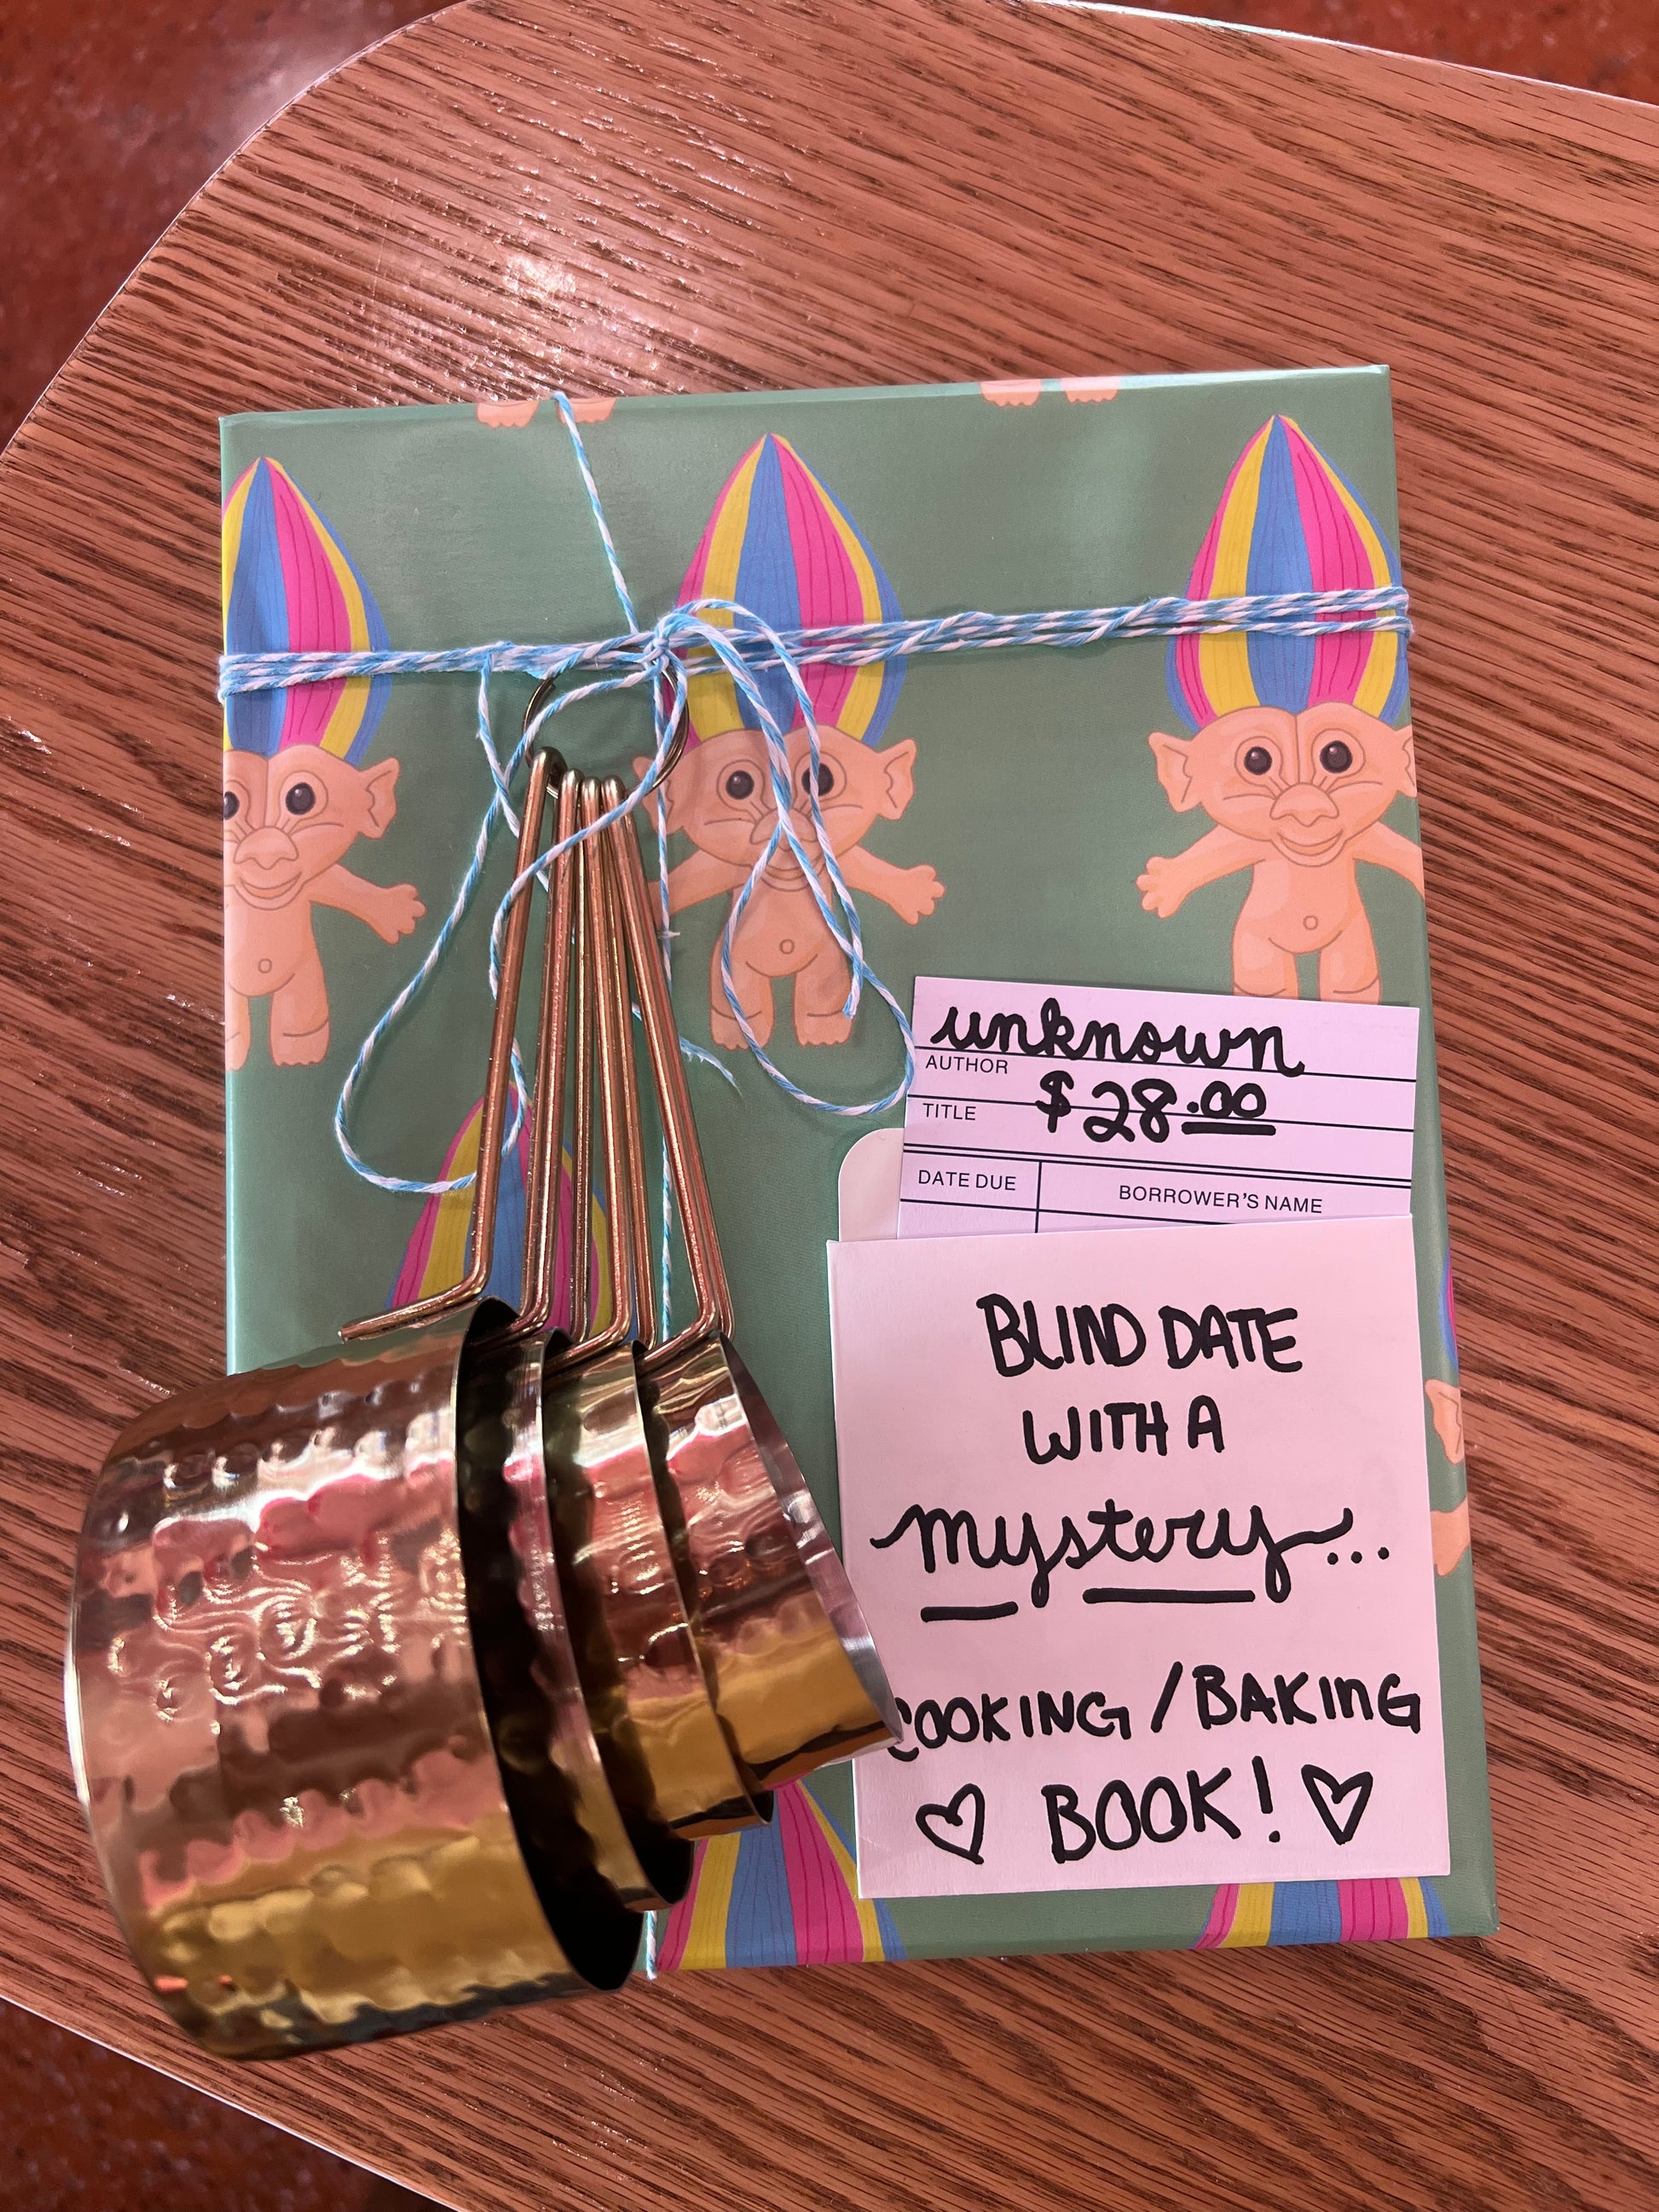 unknown
AUTHOR
$28.00
TITLE
DATE DUE BORROWER'S NAME
BLIND DATE
WITH A
mystery...
COOKING/BAKING
♡ BOOK! ♡